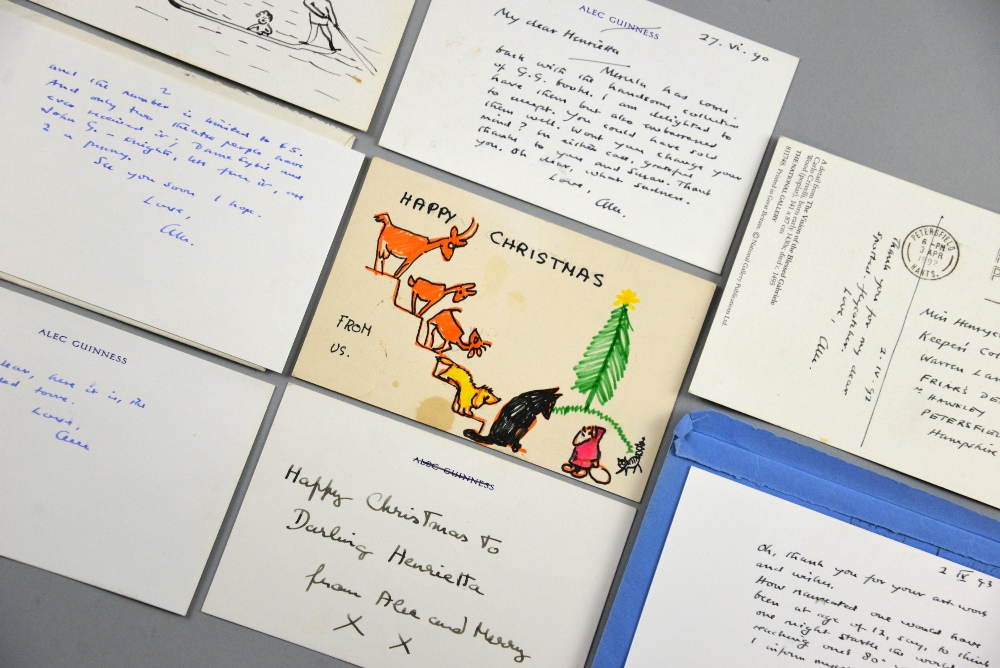 ALEC GUINNESS
27. VI. 90
My dear Henrietta
Merula has come
back with the handsome collection
of G.G. books. I am delighted to
have them but also embarrassed
to accept. You could have sold
them well. Won't you change your
mind? In either case, grateful
thanks to you and Susan. Thank
you. Oh dear, what sadness.
Love,
Alec.
2
and the number is limited to 65.
And only two theatre people have
ever received it; Dame Sybil and
John G. – Knights, let
2 a penny.
See you soon I hope.
Love,
Alec.
HAPPY
CHRISTMAS
FROM
US.
A detail from The Vision of the Blessed Gabriele
Carlo Crivelli, born early 1430s, died c. 1495
Wood (poplar), 141 x 87 cm
THE NATIONAL GALLERY
Printed in Great Britain. © National Gallery Publications Ltd.
PETERSFIELD
6 - PM
3 APR
1992
HANTS.
2. IV. 92
Thank you for my dear
together.
Love,
Alec.
Miss Henriet
Keepers Co
Warren La
FRIAR'S DE
HAWKLEY
PETERSFIEL
Hampshire
ALEC GUINNESS
ear, here it is, the
ed tome.
Love,
Alec
ALEC GUINNESS
Happy Christmas to
Darling Henrietta
from Alec and Merry
X X
2 IX 93
Oh, thank you for your art work
and wishes.
How nauseated one would have
been at age of 12, say, to think
one might startle the world
reaching one's 80
I inform